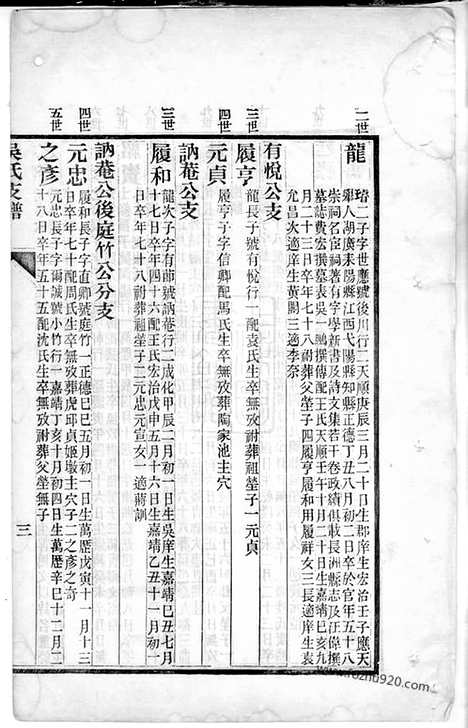 二世
龍
璿二子字世應號後川行二天順庚辰三月二十日生郡庠生宏治壬子應天
舉人湖廣耒陽縣江西弋陽縣知縣正德丁丑八月初二日卒於官年五十八
崇祠名宦祠著有字學新書及詩文集若干卷政績俱載長洲縣志及汪偉撰
墓誌費宏撰墓表吳一鵬撰傳配王氏天順壬午十月二十日生嘉靖己亥九
月二十三日卒年七十八祔葬父塋子四履亨履和用履祥女三長適庠生袁
允昌次適庠生黃閣三適李奈
有悅公支
三世
履亨
龍長子號有悅行一配袁氏生卒無攷祔葬祖塋子一元貞
四世
元貞
履亨子字信卿配馬氏生卒無攷葬陶家池主穴
訥菴公支
三世
履和
龍次子字有節號訥菴行二成化甲辰二月初一日生吳庠生嘉靖己丑七月
十七日卒年四十六配王氏宏治戊申五月十六日生嘉靖乙丑十一月初一
日卒年七十八祔葬祖塋子二元忠元宣女一適蔣訓
訥菴公後庭竹公分支
四世
元忠
履和長子字直卿號庭竹一正德己巳五月初一日生萬歷戊寅十一月十三
日卒年七十配周氏生卒無攷葬虎邱貞姬墩主穴子二之彥之奇
五世
之彥
元忠長子字爾誠號小竹行一嘉靖丁亥十月初四日生萬歷辛巳十二月二
十八日卒年五十五配沈氏生卒無攷祔葬父塋無子
吳氏支譜
三
www.fozhu920.com